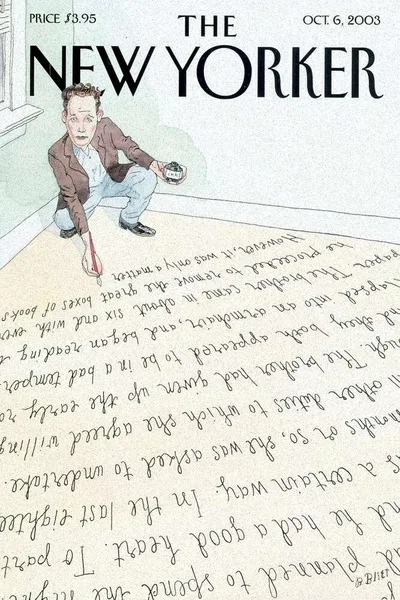 PRICE $3.95
THE
OCT. 6, 2003
NEW YORKER
INK
planned to spend the nigh
nd he had a good heart. To part
s a certain way. In the last eightee
months or so, she was asked to undertake.
ll other duties to which she agreed willing
ugh. The brother had given up the early ro
nd they both appeared to be in a bad temper.
lapsed into an armchair, and began reading
paper. The brother came in about six and with eve
he proceeded to remove the great boxes of books
However, it was only a matter
BLITT